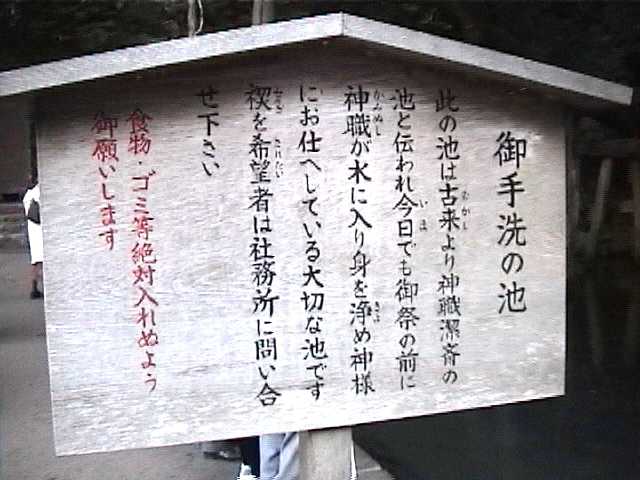 御手洗の池
此の池は古来より神職潔斎の
池と伝われ今日でも御祭の前に
神職が水に入り身を浄め神様
にお仕へしている大切な池です
禊を希望者は社務所に問い合
せ下さい
食物・ゴミ等絶対入れぬよう
御願いします